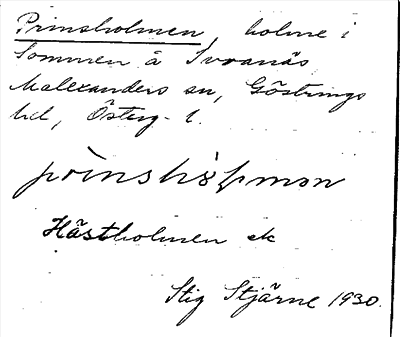 Prinsholmen, holme i
Sommen å Svanäs
Malexanders sn, Göstrings
hd, Österg. l.
prinshòlmən
Hästholmen ek
Stig Stjärne 1930.